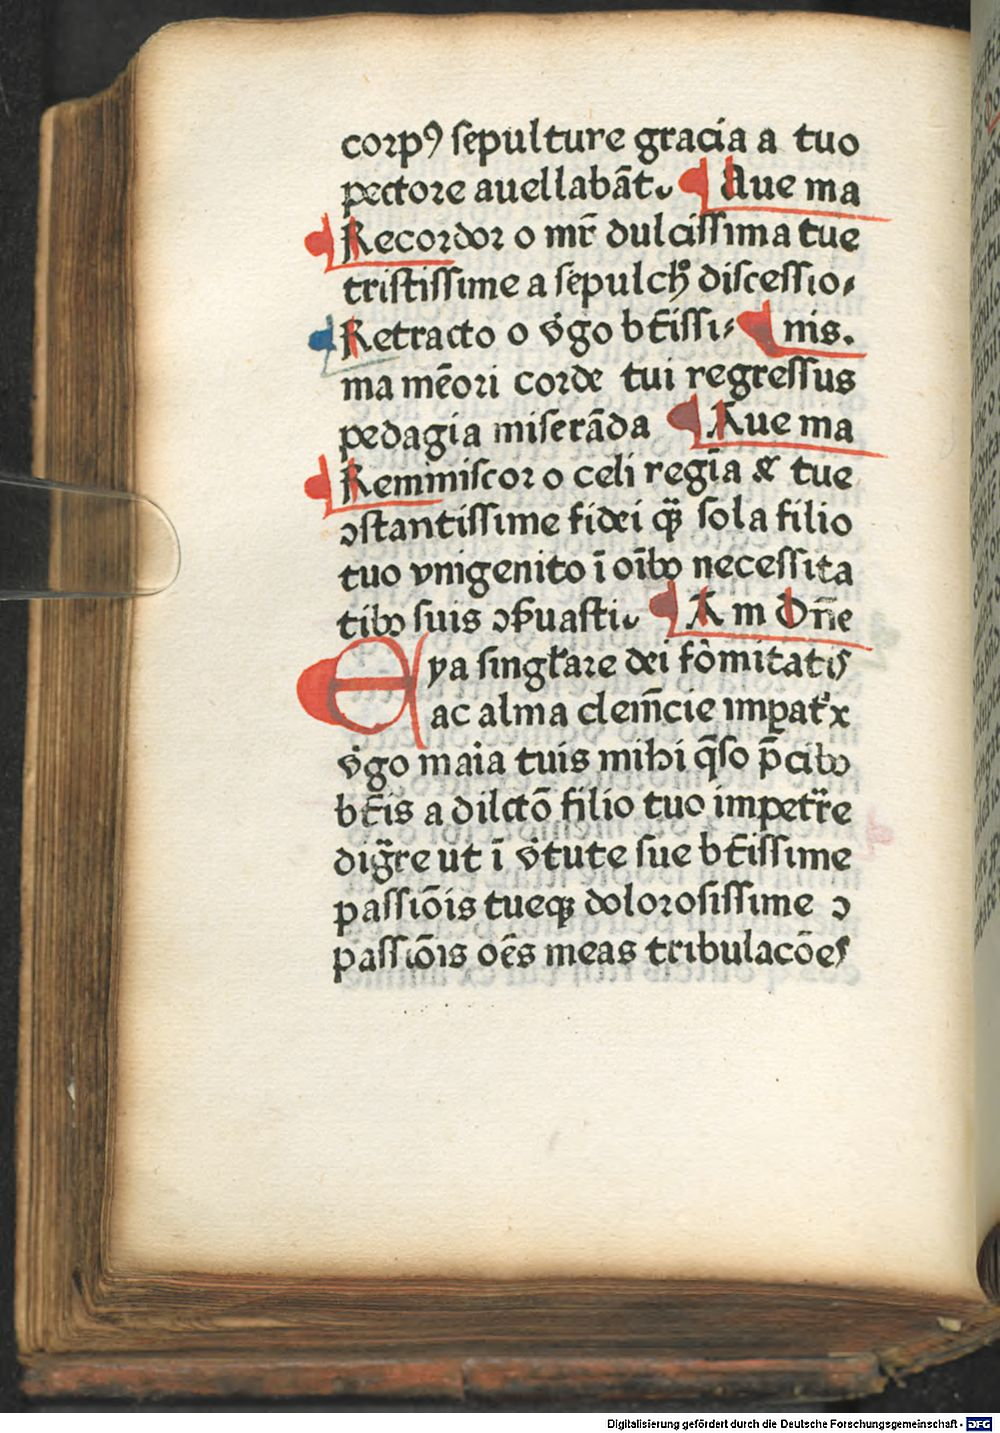 corpꝰ ſepulture gracia a tuo
pectore auellabāt. Aue ma
Recordor o mr̄ dulciſſima tue
triſtiſſime a ſepulchº diſceſſio⸗
Retracto o v̓go bt̄iſſi⸗ nis.
ma mēori corde tui regreſſus
pedagia miſerāda Aue ma
Reminiſcor o celi regīa & tue
ↄſtantiſſime fidei qᷓ ſola filio
tuo vnigenito ī oībꝫ neceſſita
tibꝫ ſuis ↄẜuaſti. A m Dn̄e
Eya ſingl̓are dei fōmitatꝭ
ac alma clem̄cie impat̓x
v̓go maia tuis mihi q̄ſo p̄cibꝫ
bt̄is a dilctō filio tuo impetr̄e
digr̄e ut ī v̓tute ſue bt̄iſſime
paſſiōis tueqꝫ doloroſiſſime ↄ
paſſiōis oēs meas tribulacōes
Digitalisierung gefördert durch die Deutsche Forschungsgemeinschaft - DFG